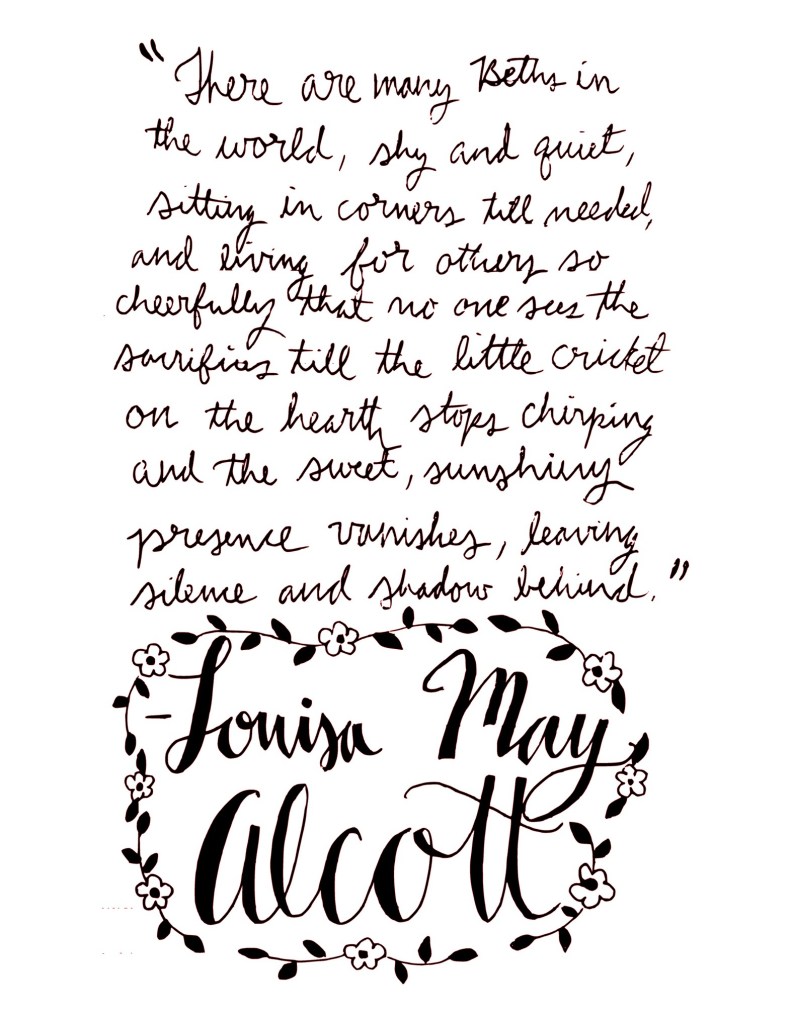 “There are many Beths in
the world, shy and quiet,
sitting in corners till needed,
and living for others so
cheerfully that no one sees the
sacrifices till the little cricket
on the hearth stops chirping
and the sweet, sunshiny
presence vanishes, leaving
silence and shadow behind.”
-Louisa May
Alcott